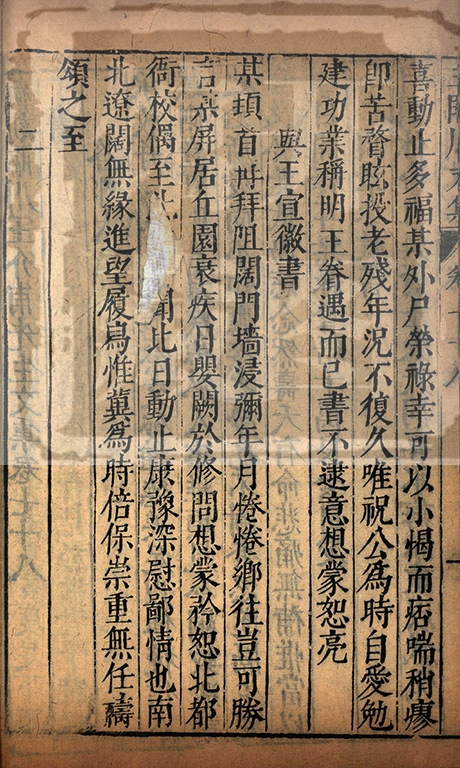 喜動止多福某外尸榮祿幸可以小愒而痞喘稍瘳
即苦瞀眩投老殘年況不復久唯祝公為時自愛勉
建功業稱明王眷遇而已書不逮意想蒙恕亮
與王宣徽書
某頊首冉拜阻闊門墻浸彌年月惓惓鄉往豈可勝
言某屏居丘園衰疾日嬰闕於修問想蒙矜恕北都
衙校偶至此 聞比日動止康豫深慰鄙情也南
北遼闊無緣進望履舄惟冀為時倍保崇重無任禱
頌之至
二